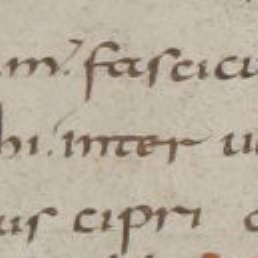 m. fascicu
hi. inter u
us cipri